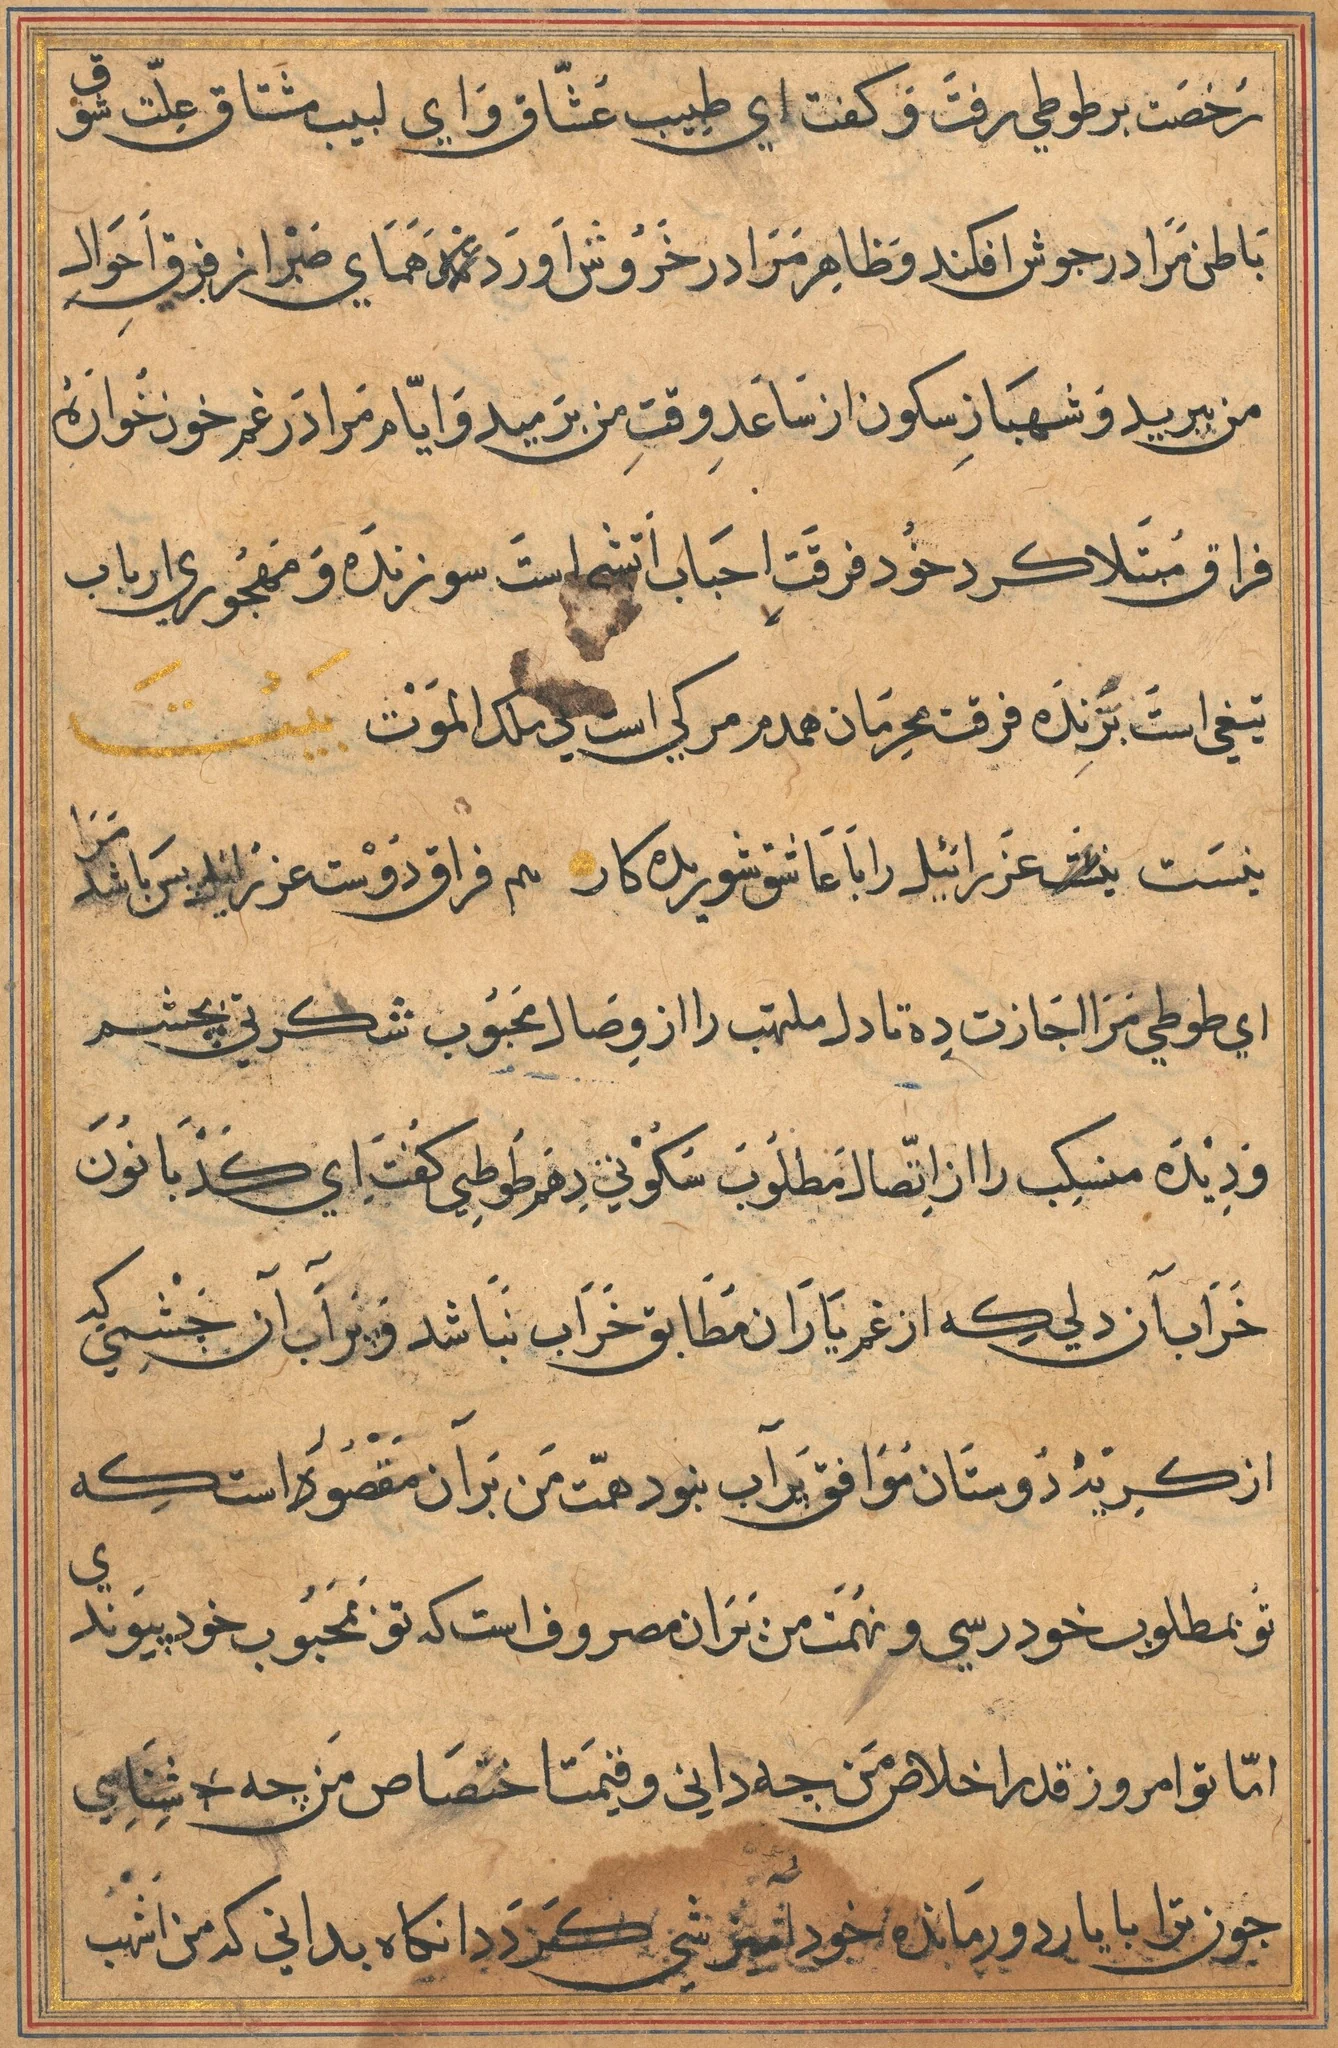 رُخصَت بر طوطی رفتَ وَ کفت ای طبِیب عُشّاق وَ ای لبیب مشتاق عِلّت شوق
بَاطن مَرَا در جوش افکند وَ ظاهِر مَرَا در خَرُوش اَورَد همَای صَبْر از فرقِ اَحوَالِ
من ببرید وَ شهبَازِ سکون از سَاعَدِ وقتِ من برَمید وَ ایّام مَرا دَر غم خون خُوارَهٔ
فراق مُبتَلا کرد خُود فرقَتِ احبَاب اَتشی استَ سوزندَه وَ مَهجُوری ارباب
تیغی استَ بُرَّندَه فرقت محرِمَان همدم مرکی است بی ملک المَوَت بَیْتَ
نیسَت عَزرائیل را بَا عَاشق شوریده کار هم فراق دَوْست عزرَائیل بس باشد مَرَا
ای طوطی مَرَا اجَازت دِه تا دل ملتهب را از وِصَال محَبُوب شکربتی بچشم
وَ دِیْدَه منسکِب را از اِتّصَال مَطلُوبَ سَکُوْنی دِهَم طُوطِی کفُتَ اِی کَذَبَانُوَن
خَرَاب آن دلی کِه از غم یَارَان مَطَابق خَرَاب نبَاشد وَ پرَآب آن چَشْمِی که
از کِریَهٔ دُوستَان مُوَافق پرآب نبود همّت مَن بَر آن مَقْصُوَر است کِه
تو بمطلوب خود رسی و نهُمَت من بَران مصروف است که تو بمَحَبُوب خود پیوَندی
امّا تو امروز قدر اخلاص مَن چه دانی و قیمَت اختصَاص مَن چه شِنَاسِی
چون ترا با یار دور مَانده خود آمیزشی کَردَد انکاه بدانی که من اَشهب